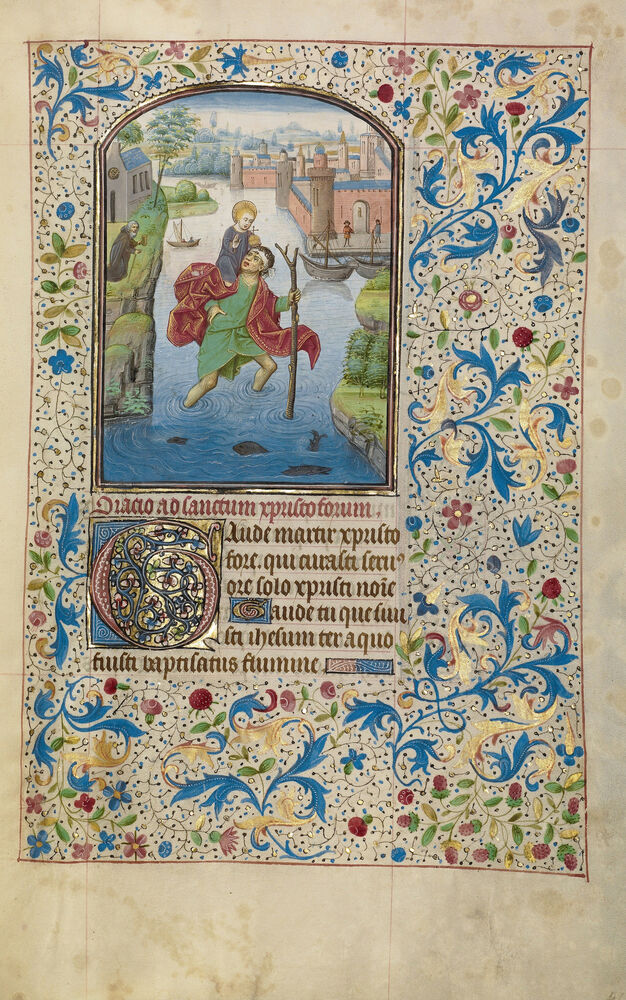 Oratio ad sanctum xpristoforum
Gaude martir xpristo
fore. qui curasti serui
ore solo xpristi noīe
Gaude tu que sum
sti ihesum ter a quo
fuisti baptisatus flumine